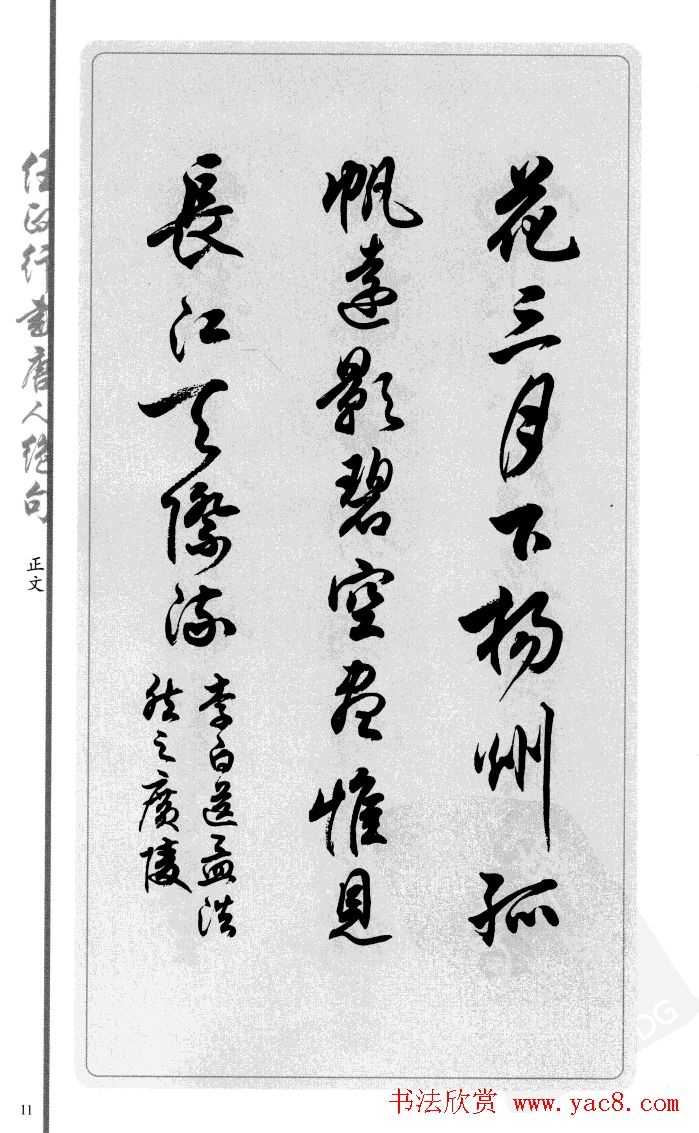 花三月下揚州孤
帆遠影碧空盡惟見
長江天際流
李白送孟浩
然之廣陵
任政行書唐人绝句
正文
11
书法欣赏 www.yac8.com
DG